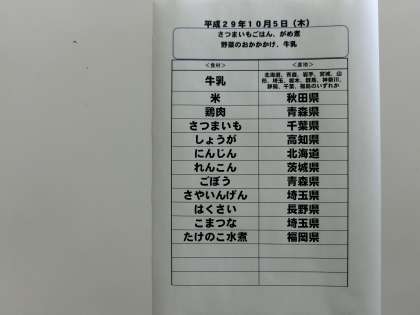 平成29年10月5日（木）
さつまいもごはん、がめ煮
野菜のおかかかけ、牛乳
＜食材＞ ＜産地＞
牛乳 北海道、青森、岩手、宮城、山形、埼玉、栃木、群馬、神奈川、静岡、千葉、福島のいずれか
米 秋田県
鶏肉 青森県
さつまいも 千葉県
しょうが 高知県
にんじん 北海道
れんこん 茨城県
ごぼう 青森県
さやいんげん 埼玉県
はくさい 長野県
こまつな 埼玉県
たけのこ水煮 福岡県